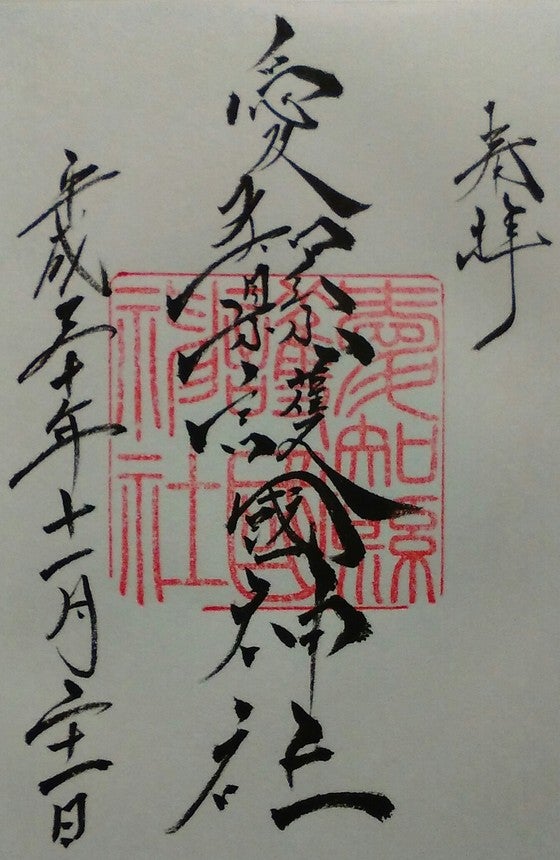 奉拝
愛知縣護國神社
平成三十年十一月二十一日
愛知縣
護國
神社